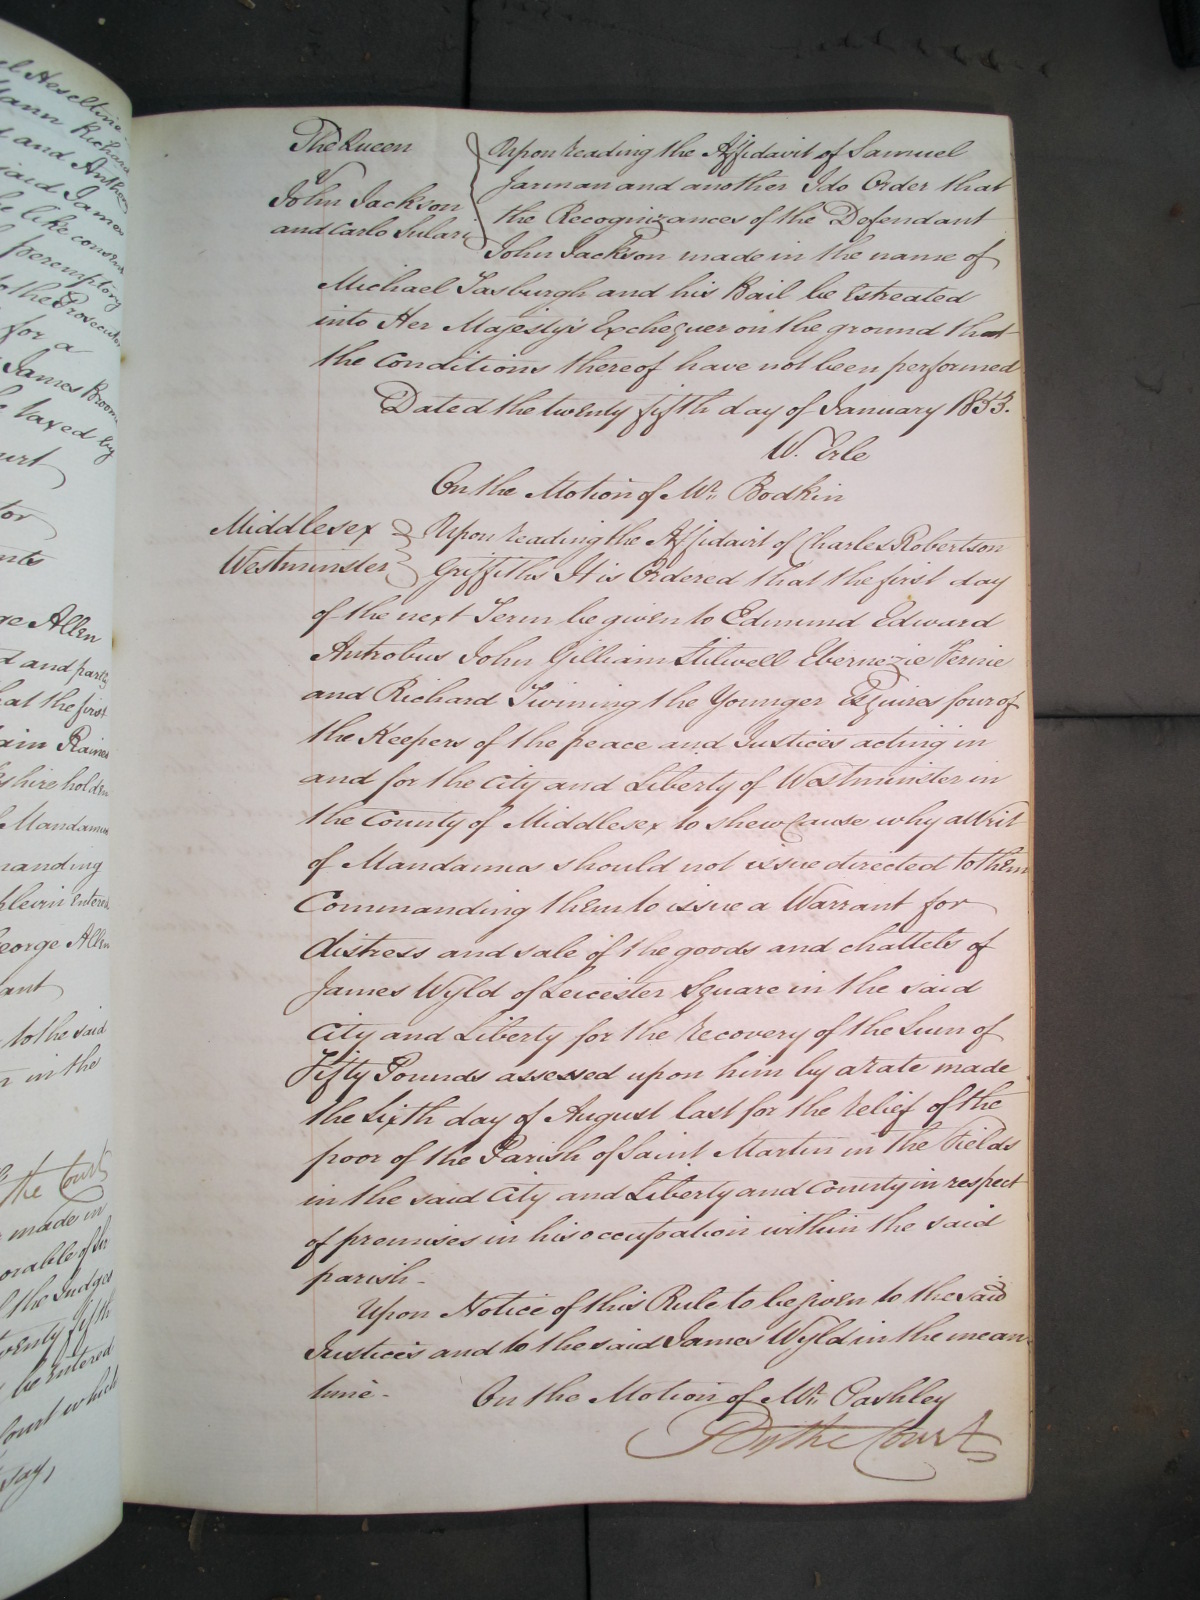 el Heseltine
Mann Richard
t and Anthony
said James
he like consent
peremptory
to the Prosecutor
for a
James Broom
be taxed by
urt
tor
nts
ge Allen
d and partly
hat the first
ain Raines
shire holden
Mandamus
manding
therein Entered
George Allen
ant
to the said
in the
the Court
made in
orable of Sir
the Judges
twenty fifth
be Entered
Court which
say,
The Queen
v
John Jackson
and Carlo Sulari
Upon reading the Affidavit of Samuel
Jarman and another I do Order that
the Recognizances of the Defendant
John Jackson made in the name of
Michael Tasburgh and his Bail be Estreated
into Her Majesty's Exchequer on the ground that
the Conditions thereof have not been performed
Dated the twenty fifth day of January 1853.
W. Erle
On the Motion of Mr. Bodkin
Middlesex
Westminster
Upon reading the Affidavit of Charles Robertson
Griffiths It is Ordered that the first day
of the next Term be given to Edmund Edward
Antrobus John Gilliam Stilwell Ebernezie Fernie
and Richard Twining the Younger Esquires four of
the Keepers of the peace and Justices acting in
and for the City and Liberty of Westminster in
the County of Middlesex to shew Cause why a Writ
of Mandamus should not issue directed to them
Commanding them to issue a Warrant for
distress and sale of the goods and chattels of
James Wyld of Leicester Square in the said
City and Liberty for the recovery of the Sum of
Fifty Pounds assessed upon him by a rate made
the Sixth day of August last for the relief of the
poor of the Parish of Saint Martin in the Fields
in the said City and Liberty and County in respect
of premises in his occupation within the said
parish -
Upon Notice of this Rule to be given to the said
Justices and to the said James Wyld in the mean
time -
On the Motion of Mr. Pashley
By the Court